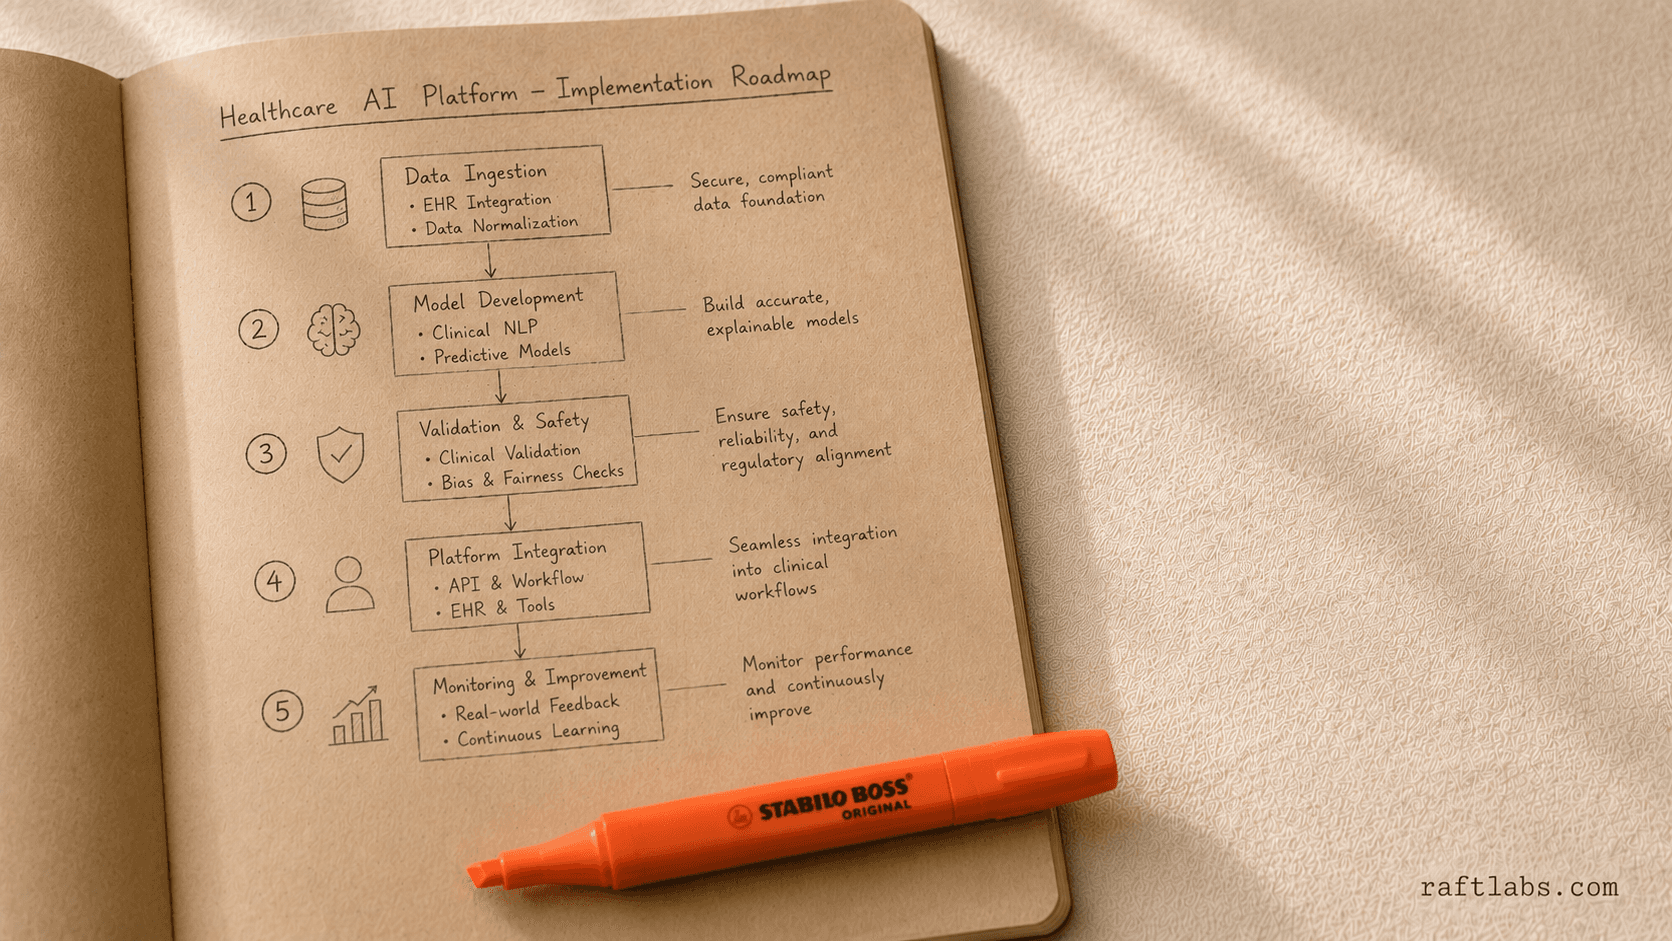 Healthcare AI Platform – Implementation Roadmap
1
Data Ingestion
• EHR Integration
• Data Normalization
Secure, compliant
data foundation
2
Model Development
• Clinical NLP
• Predictive Models
Build accurate,
explainable models
3
Validation & Safety
• Clinical Validation
• Bias & Fairness Checks
Ensure safety,
reliability, and
regulatory alignment
4
Platform Integration
• API & Workflow
• EHR & Tools
Seamless integration
into clinical
workflows
5
Monitoring & Improvement
• Real-world Feedback
• Continuous Learning
Monitor performance
and continuously
improve
STABILO BOSS®
ORIGINAL
raftlabs.com